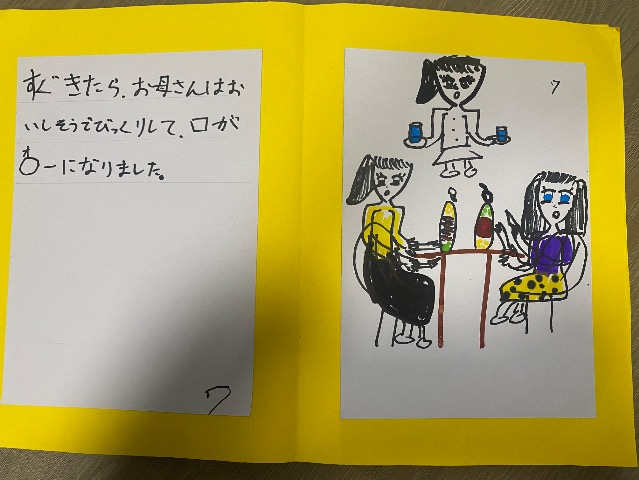 すぐきたら、お母さんはお
いしそうでびっくりして、口が
おーになりました。
7
7